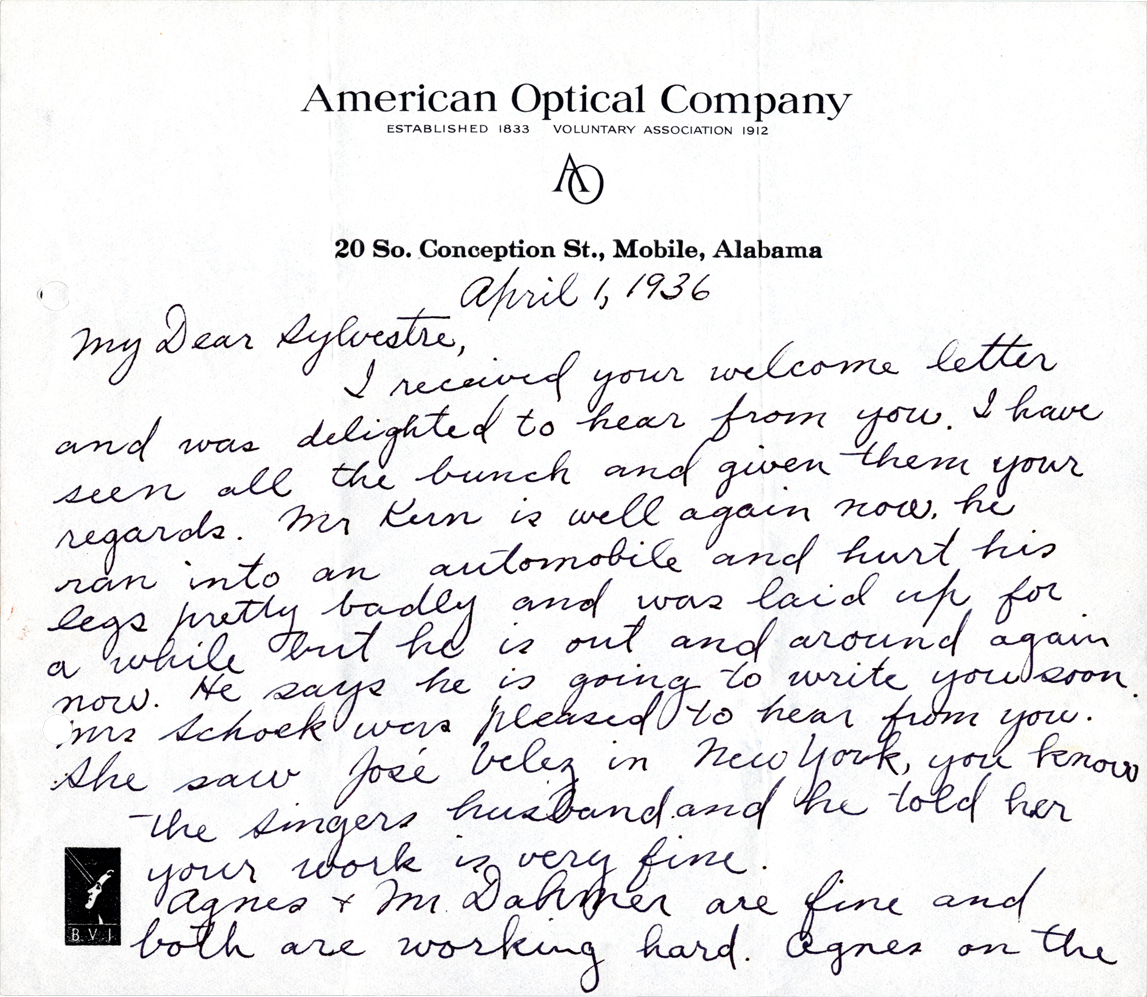 American Optical Company
ESTABLISHED 1833 VOLUNTARY ASSOCIATION 1912
AO
20 So. Conception St., Mobile, Alabama
April 1, 1936
My Dear Sylvestre,
I received your welcome letter
and was delighted to hear from you. I have
seen all the bunch and given them your
regards. Mr Kern is well again now. he
ran into an automobile and hurt his
legs pretty badly and was laid up for
a while but he is out and around again
now. He says he is going to write you soon.
Mrs Schock was pleased to hear from you.
She saw José Velez in New York, you know
the singers husband and he told her
your work is very fine.
Agnes + Mr. Dahmer are fine and
both are working hard. Agnes on the
B.V.I.